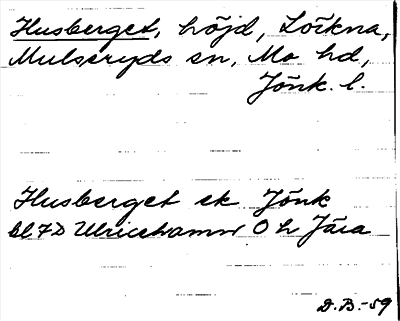 Husberget, höjd, Löckna,
Mulseryds sn, Mo hd,
Jönk. l.
Husberget ek Jönk
bl 7D Ulricehamn O h Jära
D.B.-59